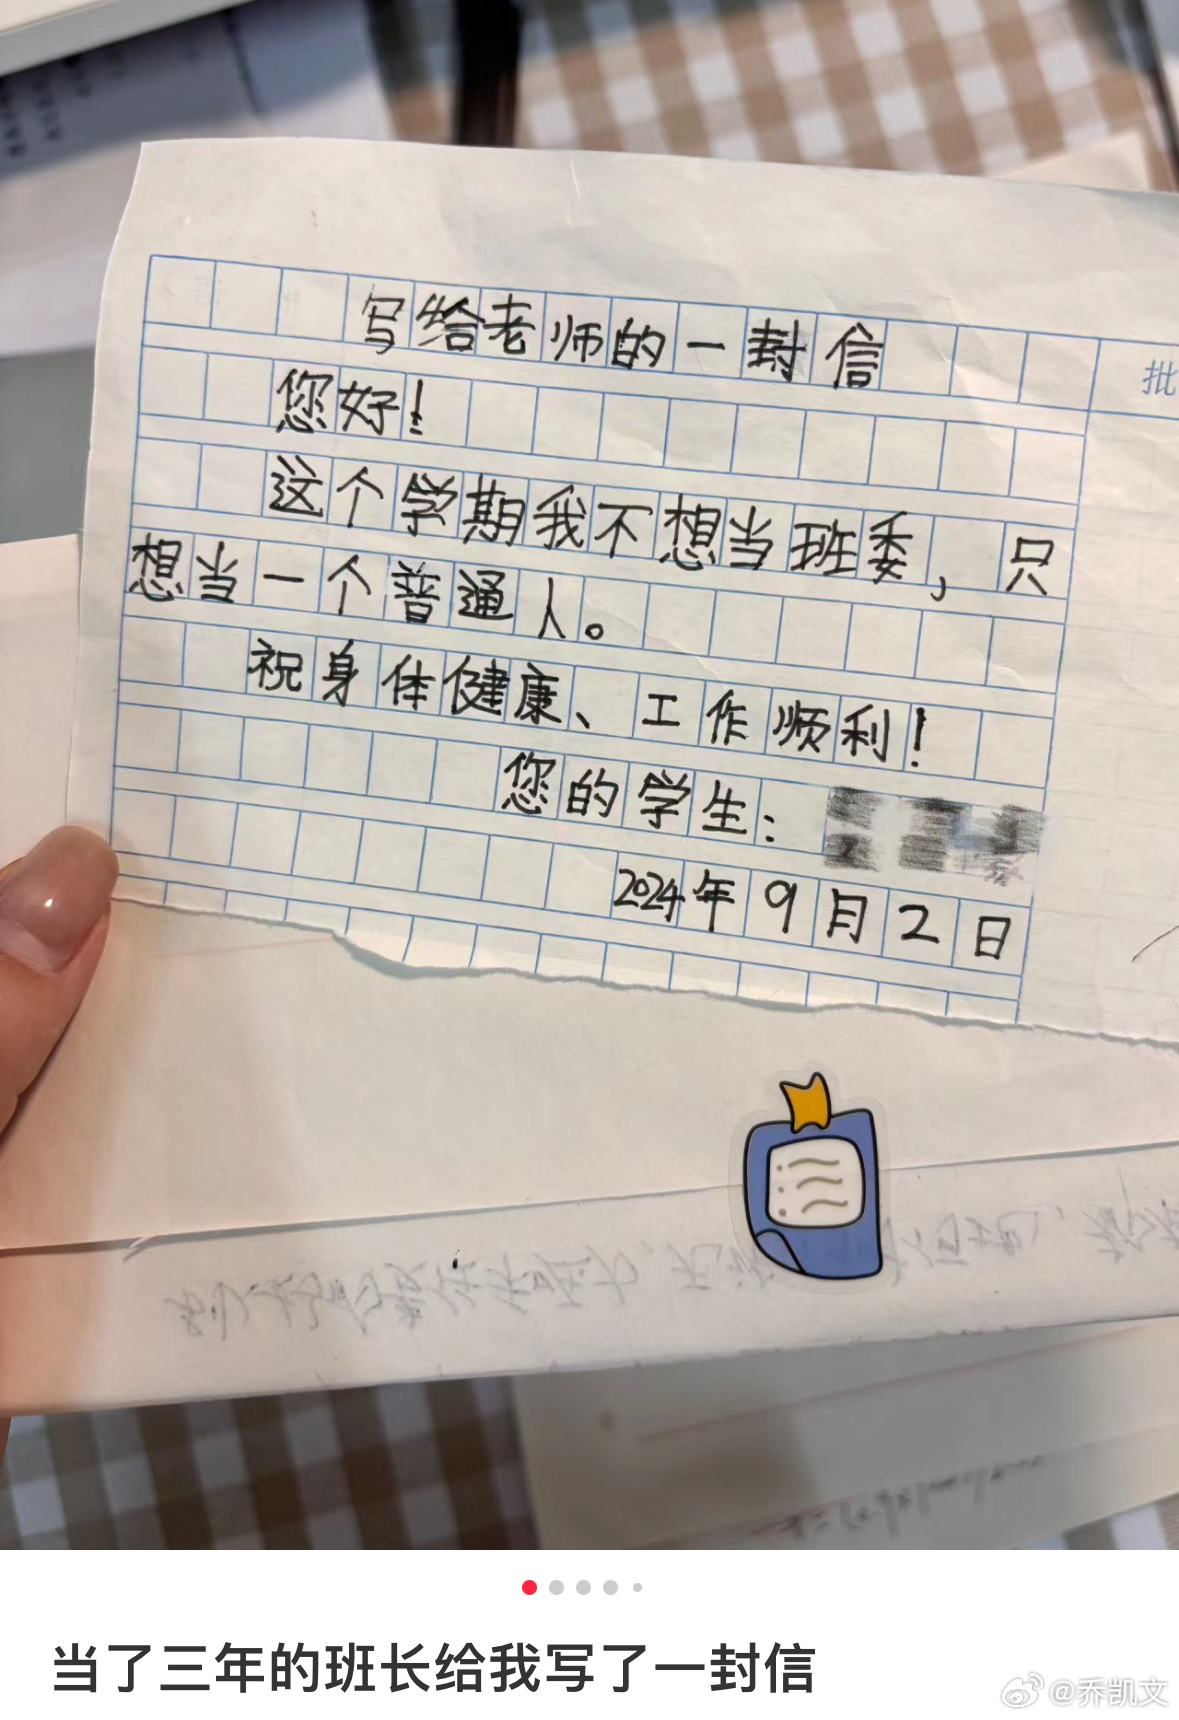 写给老师的一封信
批
您好！
这个学期我不想当班委，只
想当一个普通人。
祝身体健康、工作顺利！
您的学生：
2024年9月2日
当了三年的班长给我写了一封信
@乔凯文